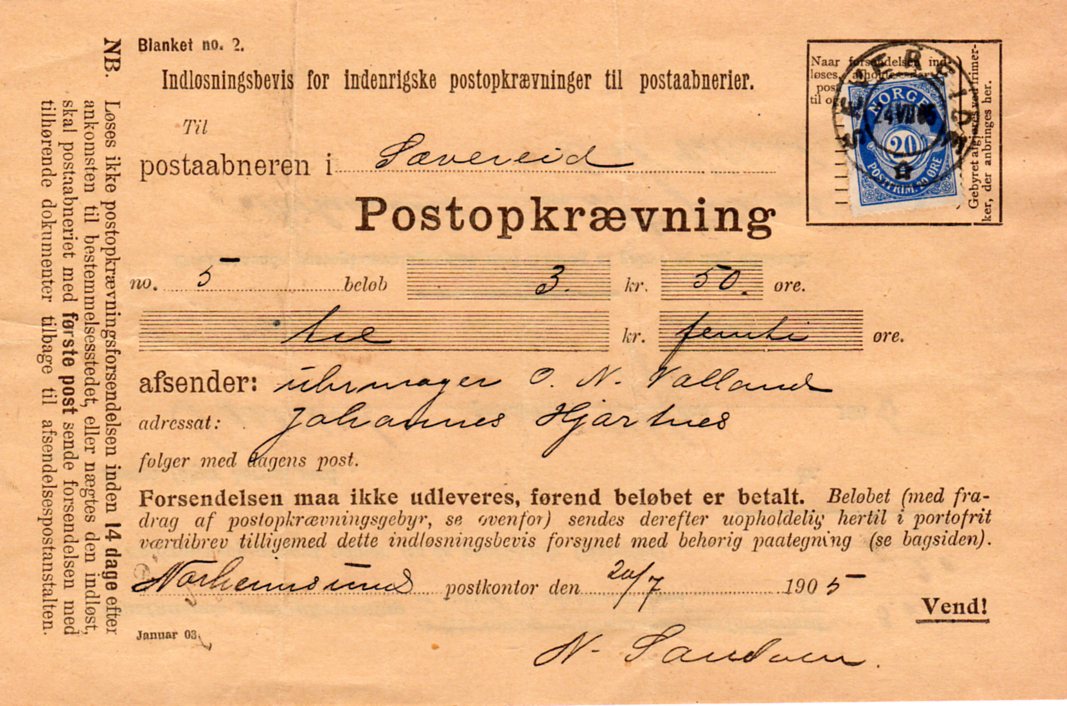 Blanket no. 2.
Indløsningsbevis for indenrigske postopkrævninger til postaabnerier.
Til
postaabneren i Sævereid
Postopkrævning
no. 5 beløb 3. kr. 50. øre.
tre kr. femti øre.
afsender: uhrmager O. N. Valland
adressat: Johannes Hjartnes
følger med dagens post.
Forsendelsen maa ikke udleveres, førend beløbet er betalt. Beløbet (med fra-
drag af postopkrævningsgebyr, se ovenfor) sendes derefter uopholdelig hertil i portofrit
værdibrev tilligemed dette indløsningsbevis forsynet med behørig paategning (se bagsiden).
Norheimsund postkontor den 20/7 1905
Vend!
Januar 03
N. Sandven.
NB. Løses ikke postopkrævningsforsendelsen inden 14 dage efter
ankomsten til bestemmelsesstedet, eller nægtes den indløst,
skal postaabneriet med første post sende forsendelsen med
tilhørende dokumenter tilbage til afsendelsespostanstalten.
Naar forsendelsen ind-
løses,
post
til
Gebyret afgjøres ved frimer-
ker, der anbringes her.
SÆVEREID
24 VII 05
NORGE
20
POSTFRIM. 20 ØRE